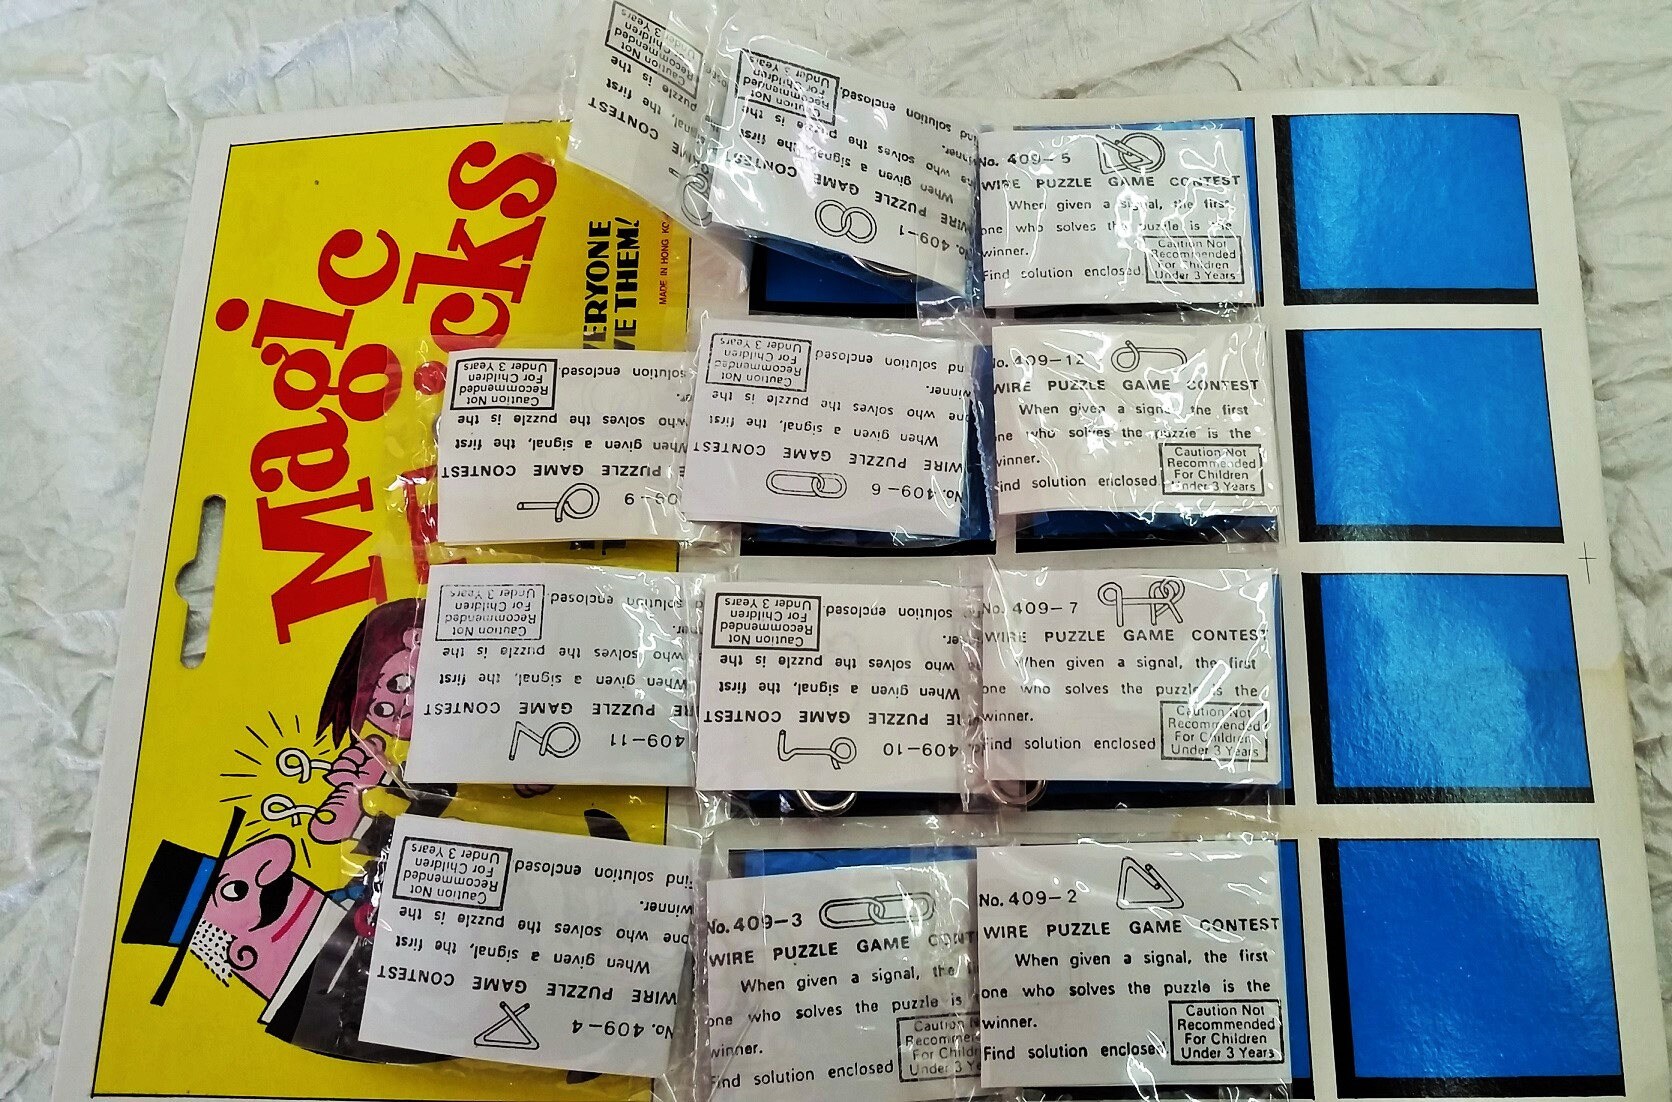 Magic
Tricks
ERYONE
VE THEM!
MADE IN HONG KO
CONTEST
the first
puzzle is the
Caution Not
Recommended
For Children
Under 3 Years
No. 409-1
WIRE PUZZLE GAME CONTEST
When given a signal, the first
one who solves the puzzle is the
winner.
Find solution enclosed.
Caution Not
Recommended
For Children
Under 3 Years
No. 409-5
WIRE PUZZLE GAME CONTEST
When given a signal, the first
one who solves the puzzle is the
winner.
Find solution enclosed
Caution Not
Recommended
For Children
Under 3 Years
409-9
E PUZZLE GAME CONTEST
When given a signal, the first
who solves the puzzle is the
er.
solution enclosed.
Caution Not
Recommended
For Children
Under 3 Years
No. 409-6
WIRE PUZZLE GAME CONTEST
When given a signal, the first
one who solves the puzzle is the
winner.
nd solution enclosed
Caution Not
Recommended
For Children
Under 3 Years
No. 409-12
WIRE PUZZLE GAME CONTEST
When given a signal, the first
one who solves the puzzle is the
winner.
Find solution enclosed
Caution Not
Recommended
For Children
Under 3 Years
409-11
RE PUZZLE GAME CONTEST
When given a signal, the first
who solves the puzzle is the
ner.
solution enclosed.
Caution Not
Recommended
For Children
Under 3 Years
409-10
RE PUZZLE GAME CONTEST
When given a signal, the first
who solves the puzzle is the
er.
solution enclosed.
Caution Not
Recommended
For Children
Under 3 Years
No. 409-7
WIRE PUZZLE GAME CONTEST
When given a signal, the first
one who solves the puzzle is the
winner.
Find solution enclosed
Caution Not
Recommended
For Children
Under 3 Years
No. 409-4
WIRE PUZZLE GAME CONTEST
When given a signal, the first
one who solves the puzzle is the
winner.
Find solution enclosed
Caution Not
Recommended
For Children
Under 3 Years
No. 409-3
WIRE PUZZLE GAME CONT
When given a signal, the
one who solves the puzzle is
winner.
Find solution enclosed
Caution N
Recommen
For Child
Under 3 Ye
No. 409-2
WIRE PUZZLE GAME CONTEST
When given a signal, the first
one who solves the puzzle is the
winner.
Find solution enclosed
Caution Not
Recommended
For Children
Under 3 Years